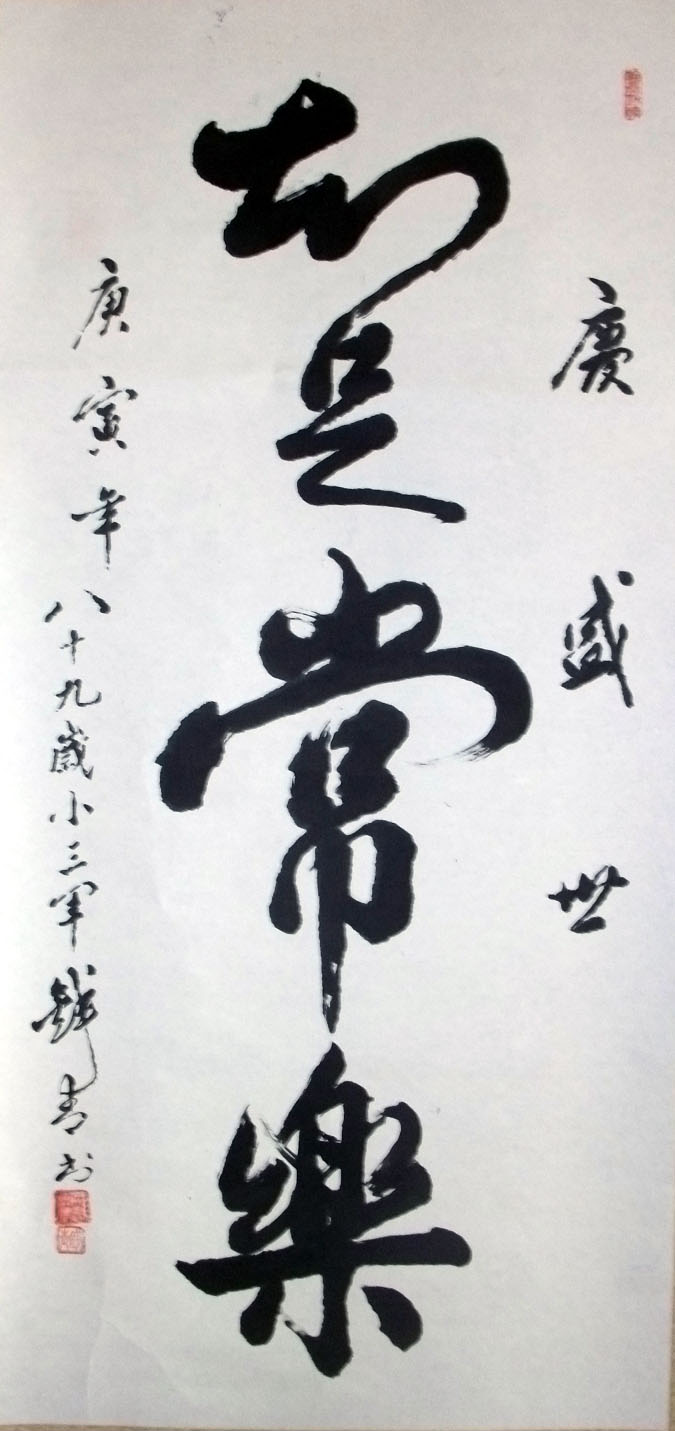 慶盛世
知足常樂
庚寅年八十九歲小三軍錢青书